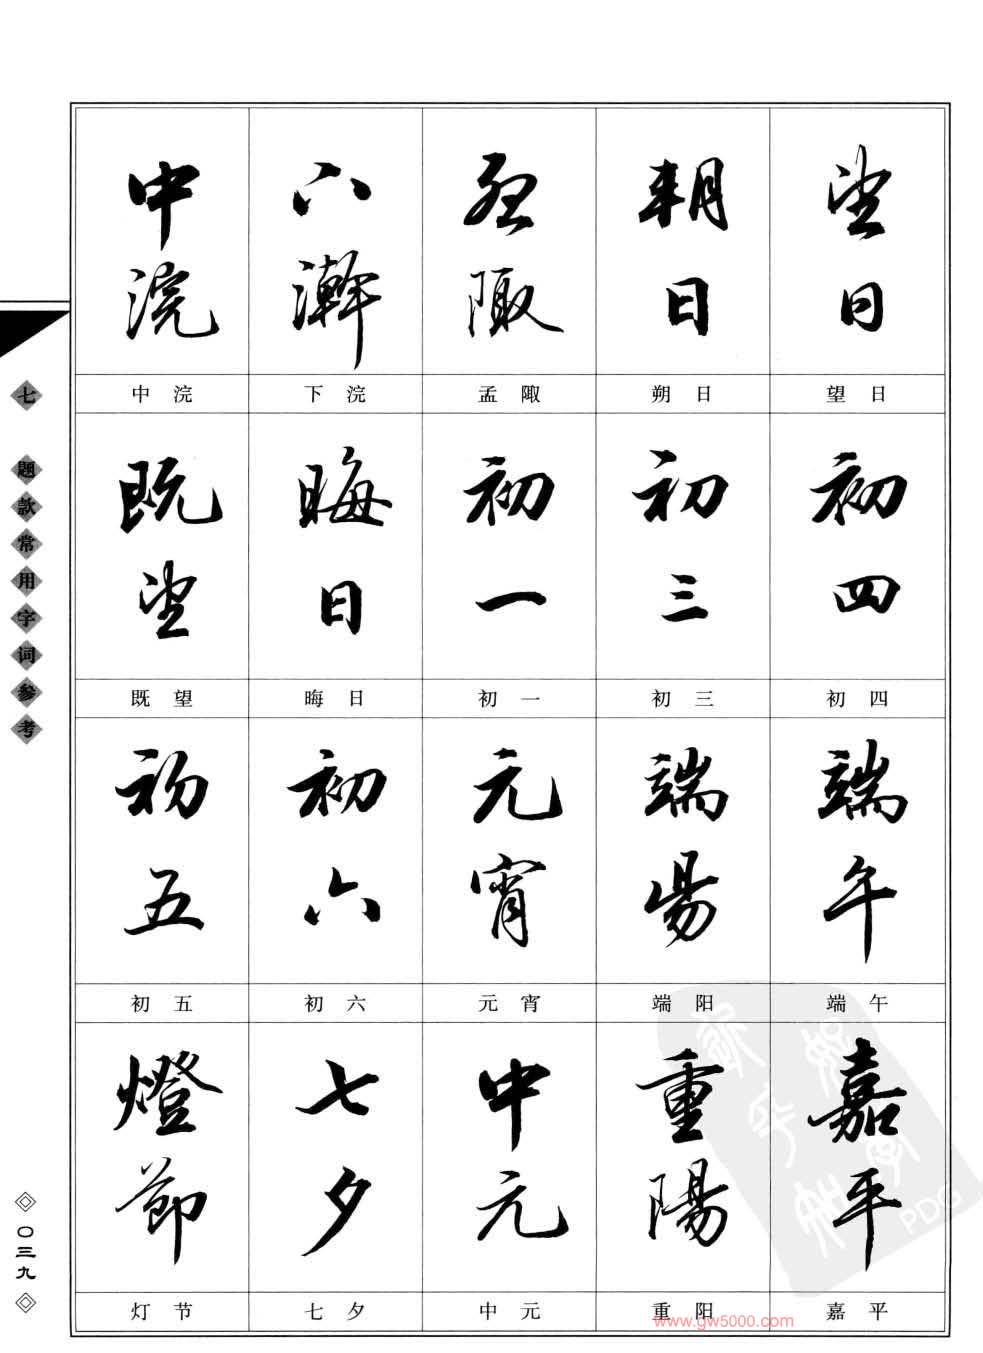 中 下 孟 朔 望
浣 澣 陬 日 日
中浣 下浣 孟陬 朔日 望日
既 晦 初 初 初
望 日 一 三 四
既望 晦日 初一 初三 初四
初 初 元 端 端
五 六 宵 陽 午
初五 初六 元宵 端阳 端午
燈 七 中 重 嘉
節 夕 元 陽 平
灯节 七夕 中元 重阳 嘉平
七 题款常用字词参考
〇三九
PDG
www.gw5000.com